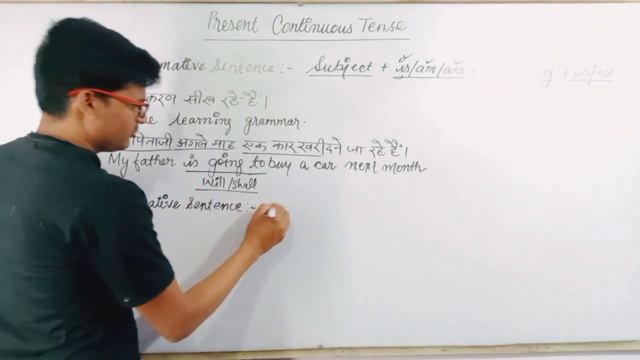 Present Continuous Tense
mative Sentence :- Subject + is/am/are ng + object
करण सीख रहे है।
learning grammar.
पिताजी अगले माह एक कार खरीदने जा रहे हैं।
My father is going to buy a car next month
Will/Shall
ative Sentence :-